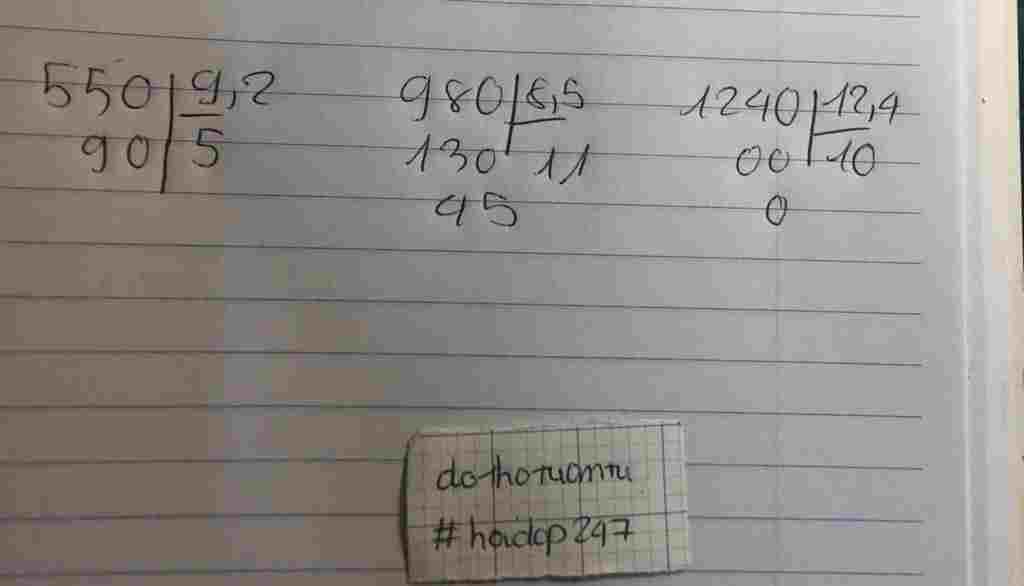 550 9,2
90 5
980 8,5
130 11
45
1240 12,4
00 10
0
#hoidap247